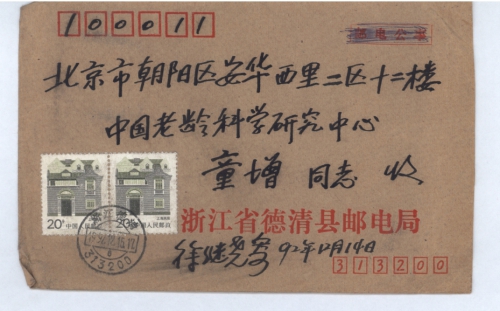 100011
邮电公事
北京市朝阳区安华西里二区十二楼
中国老龄科学研究中心
童增 同志 收
20分 中国人民邮政
20分 中国人民邮政
浙江
313200
浙江省德清县邮电局
92年12月14日
313200